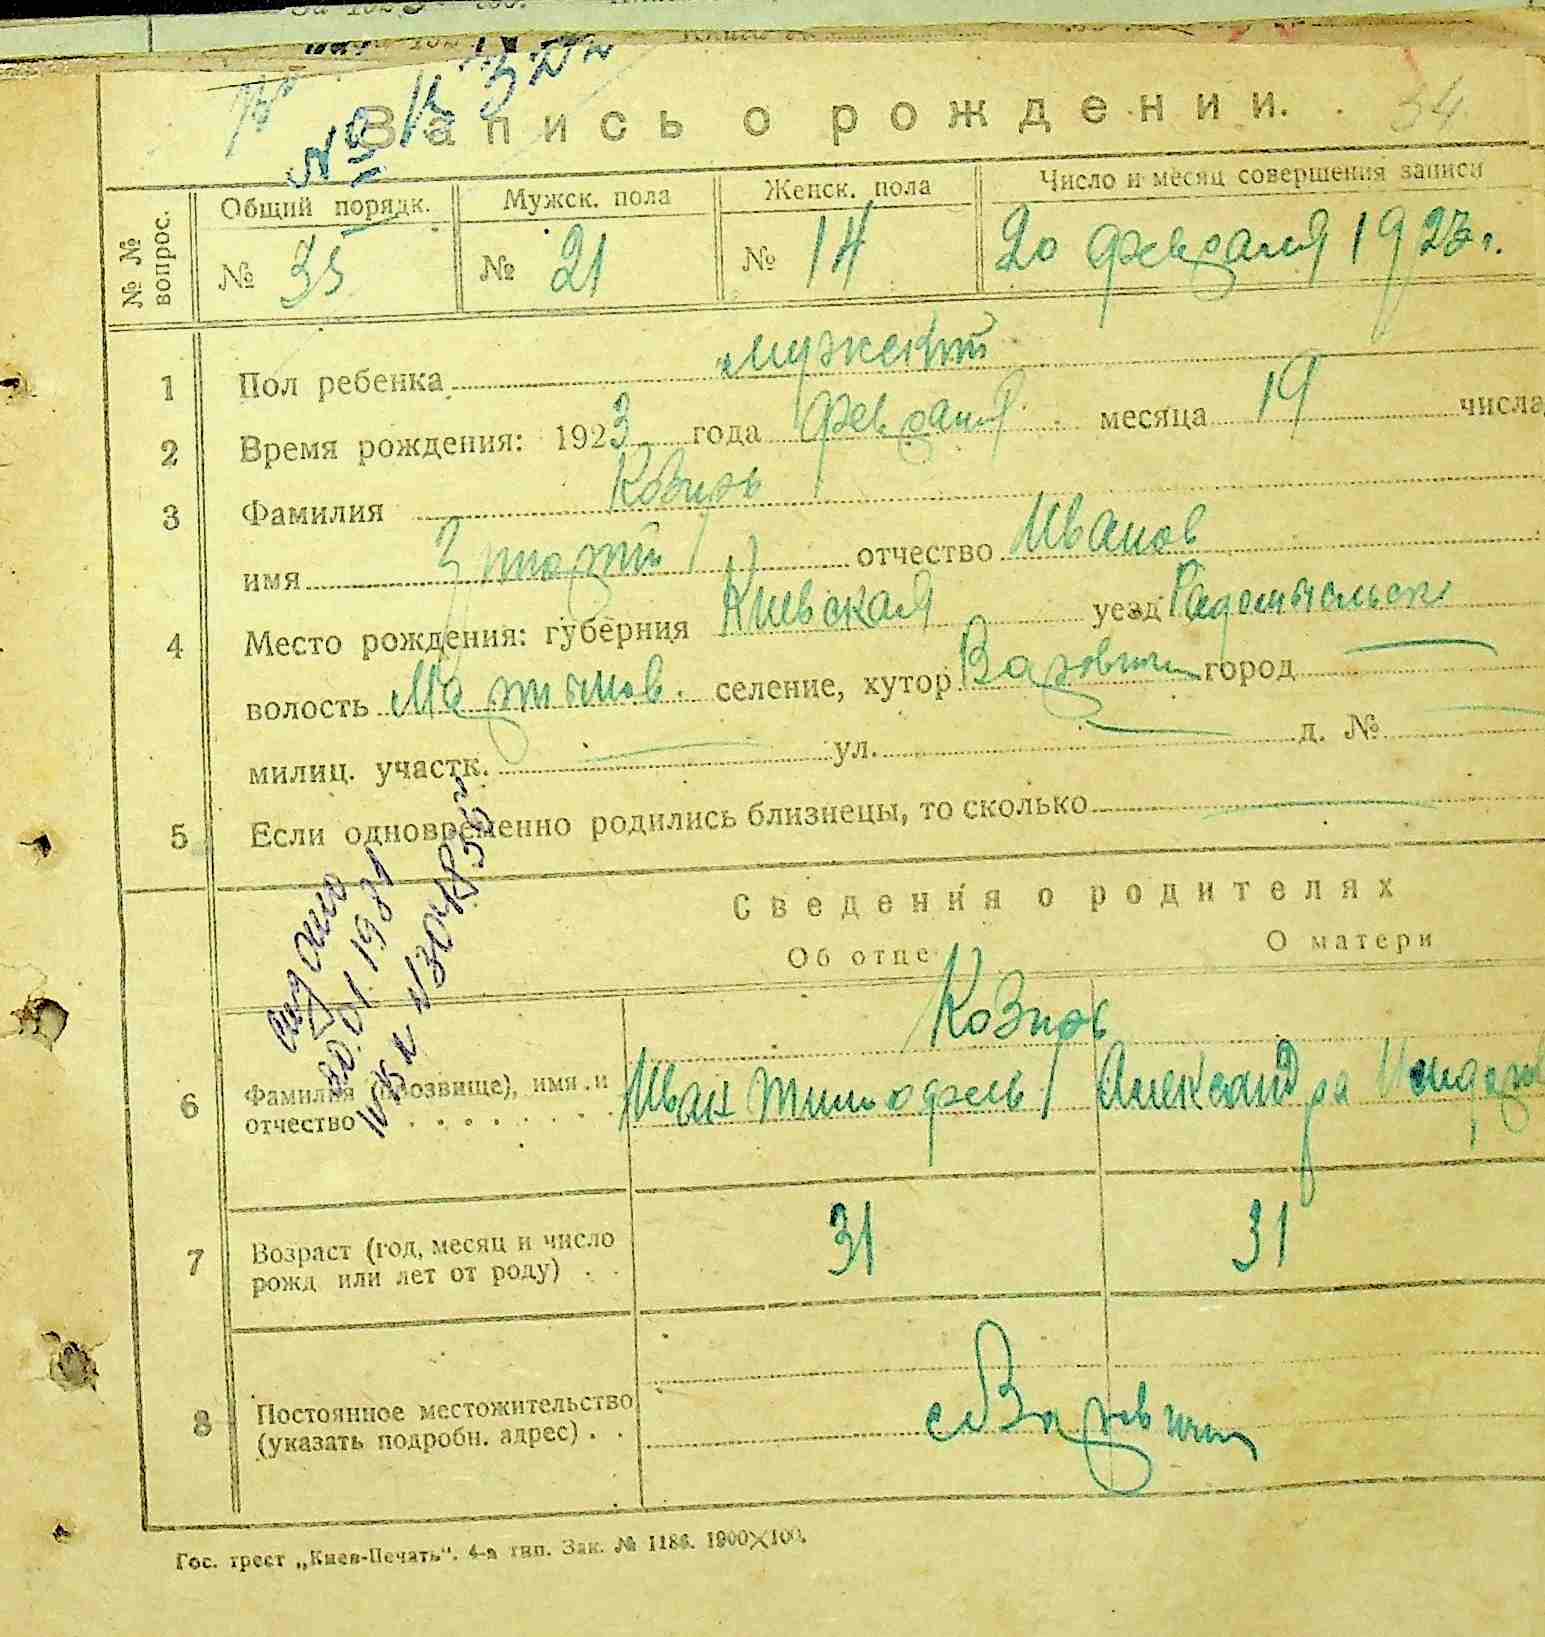 №
Запись о рождении. 34
№ № вопрос.
Общий порядк. Мужск. пола Женск. пола Число и месяц совершения записи
№ 35 № 21 № 14 20 февраля 1923 г.
1 Пол ребенка мужской
2 Время рождения: 1923 года февраля месяца 19 числа
3 Фамилия Козирь
имя отчество Иванов
4 Место рождения: губерния Киевская уезд Радомысльск
волость Мартынов. селение, хутор город
милиц. участк. ул. д. №
5 Если одновременно родились близнецы, то сколько
Сведения о родителях
Об отце О матери
Козирь
6 Фамилия (прозвище), имя и Иван Тимофеев Александра
отчество
7 Возраст (год, месяц и число 31 31
рожд или лет от роду)
8 Постоянное местожительство
(указать подробн. адрес)
Гос. трест „Киев-Печать". 4-а тип. Зак. № 1186. 1900×100.